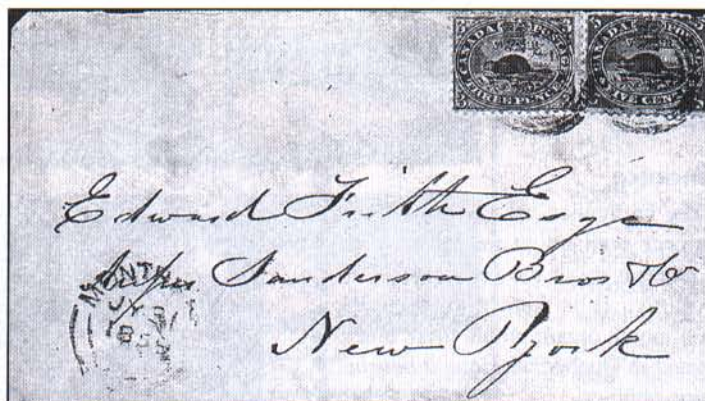 CANADA POSTAGE
THREE PENCE
CANADA POSTAGE
FIVE CENTS
Edward Frith Esqe
Sanderson Bros & Co
New York
MONT
JY
185